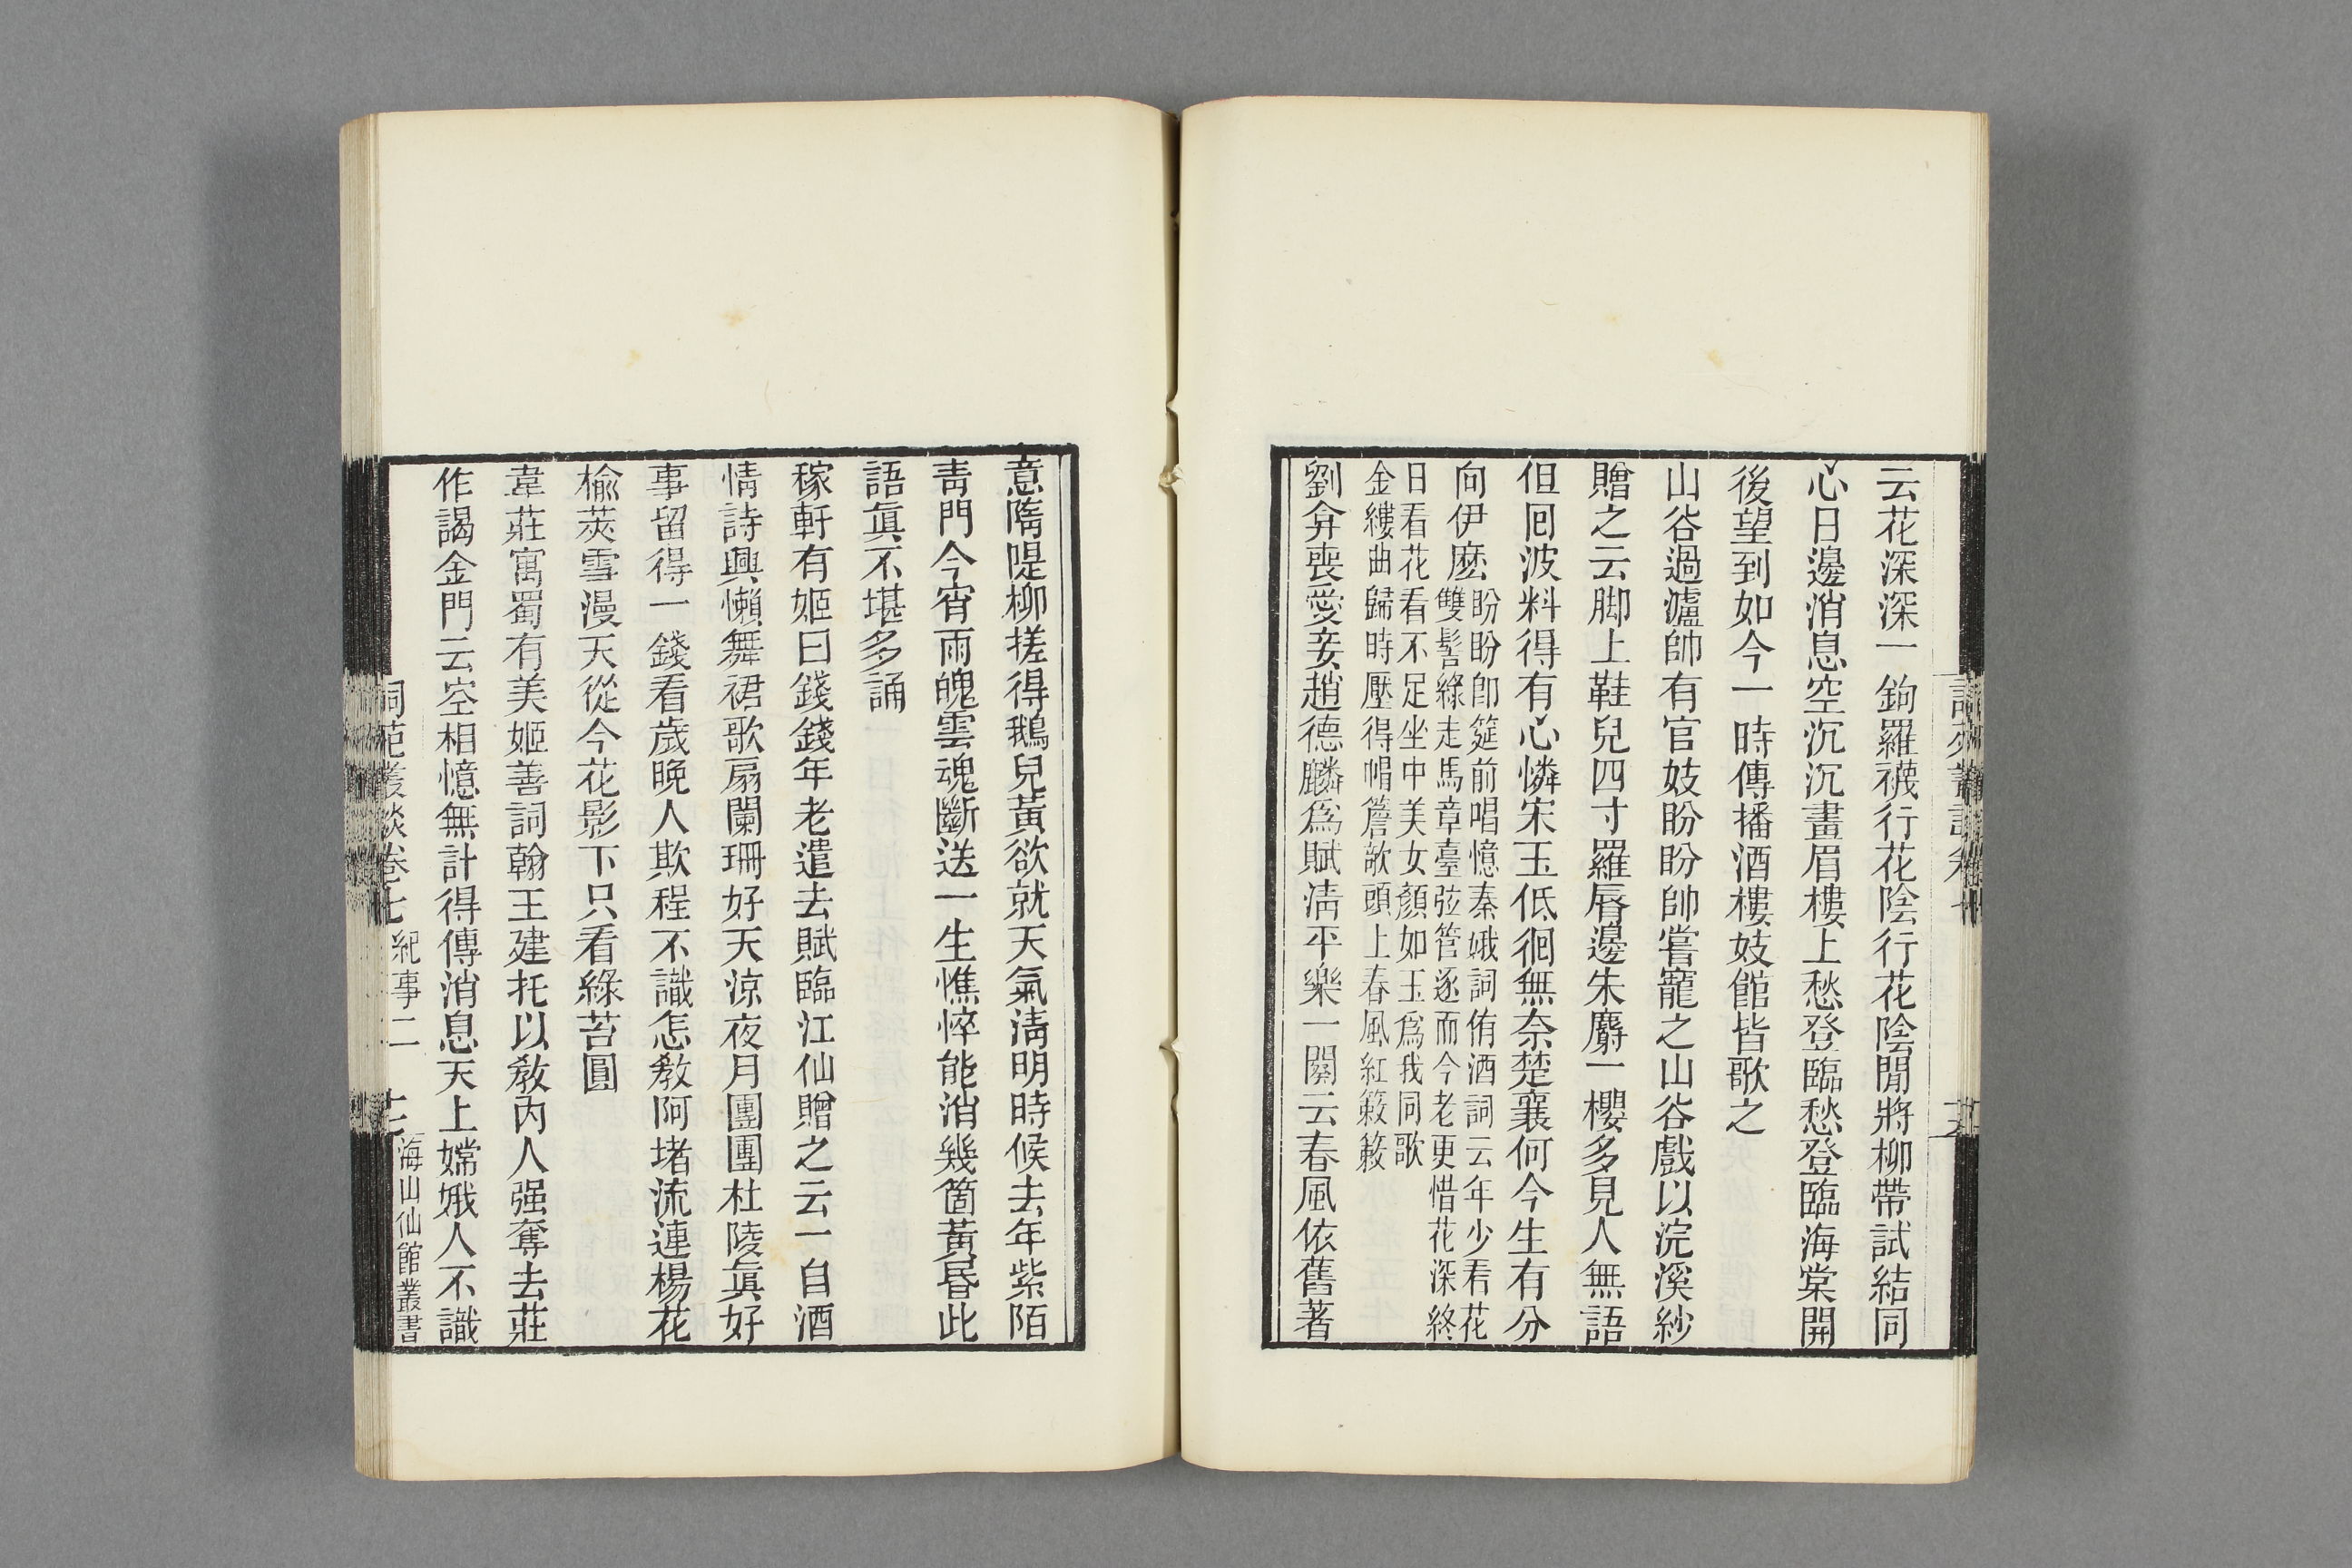 云花深深一鉤羅襪行花陰行花陰閒將柳帶試結同
心日邊消息空沉沉畫眉樓上愁登臨愁登臨海棠開
後望到如今一時傳播酒樓妓館皆歌之
山谷過瀘帥有官妓盼盼帥嘗寵之山谷戲以浣溪紗
贈之云脚上鞋兒四寸羅唇邊朱麝一櫻多見人無語
但囘波料得有心憐宋玉低徊無奈楚襄何今生有分
向伊麽
盼盼卽筵前唱憶秦娥詞侑酒詞云年少看花
雙髻綠走馬章臺弦管逐而今老更惜花深終
日看花看不足坐中美女顏如玉爲我同歌
金縷曲歸時壓得帽簷欹頭上春風紅簌簌
劉弇喪愛妾趙德麟爲賦淸平樂一闋云春風依舊著
意隋隄柳搓得鵝兒黃欲就天氣淸明時候去年紫陌
靑門今宵雨魄雲魂斷送一生憔悴能消幾箇黃昏此
語眞不堪多誦
稼軒有姬曰錢錢年老遣去賦臨江仙贈之云一自酒
情詩興懶舞裙歌扇闌珊好天涼夜月團團杜陵眞好
事留得一錢看歲晚人欺程不識怎敎阿堵流連楊花
榆莢雪漫天從今花影下只看綠苔圓
韋莊寓蜀有美姬善詞翰王建托以敎內人强奪去莊
作謁金門云空相憶無計得傳消息天上嫦娥人不識
詞苑叢談卷七 紀事二
海山仙館叢書